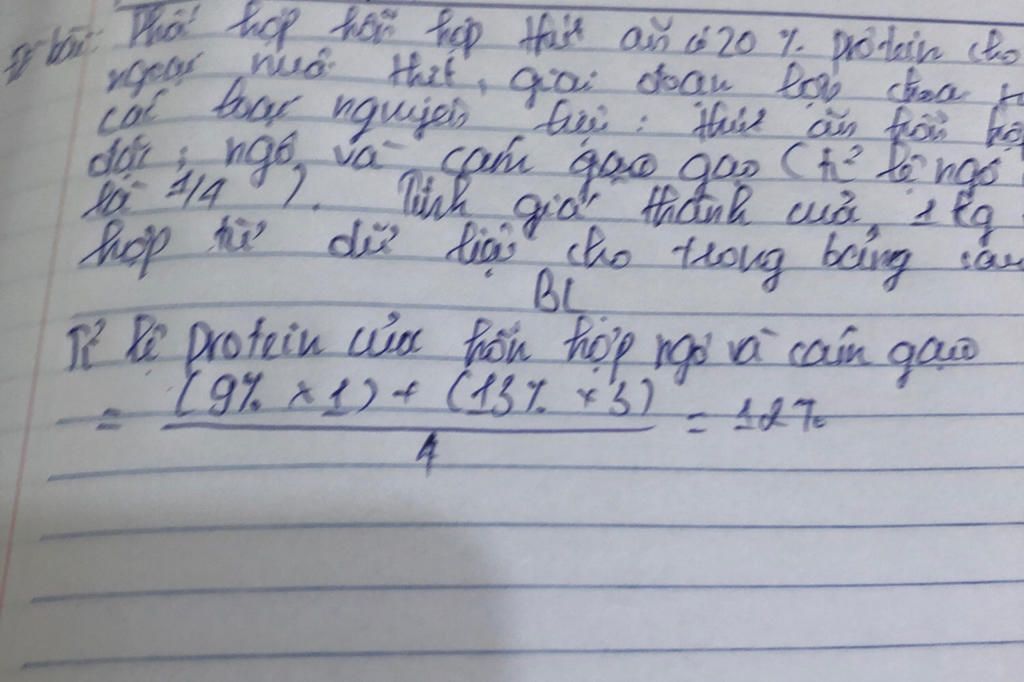 Đề bài: Phối hợp hỗn hợp thức ăn có 20 % protein cho
ngoại nuôi thịt, giai đoạn lợn choai từ
các loại nguyên liệu: thức ăn hỗn hợp
đặc, ngô và cám gạo gạo (tỉ lệ ngô
là 1/4 ). Tính giá thành của 1 kg
hợp từ dữ liệu cho trong bảng sau
BL
Tỉ lệ protein của hỗn hợp ngô và cám gạo
= (9% × 1) + (13% × 3) / 4 = 12%